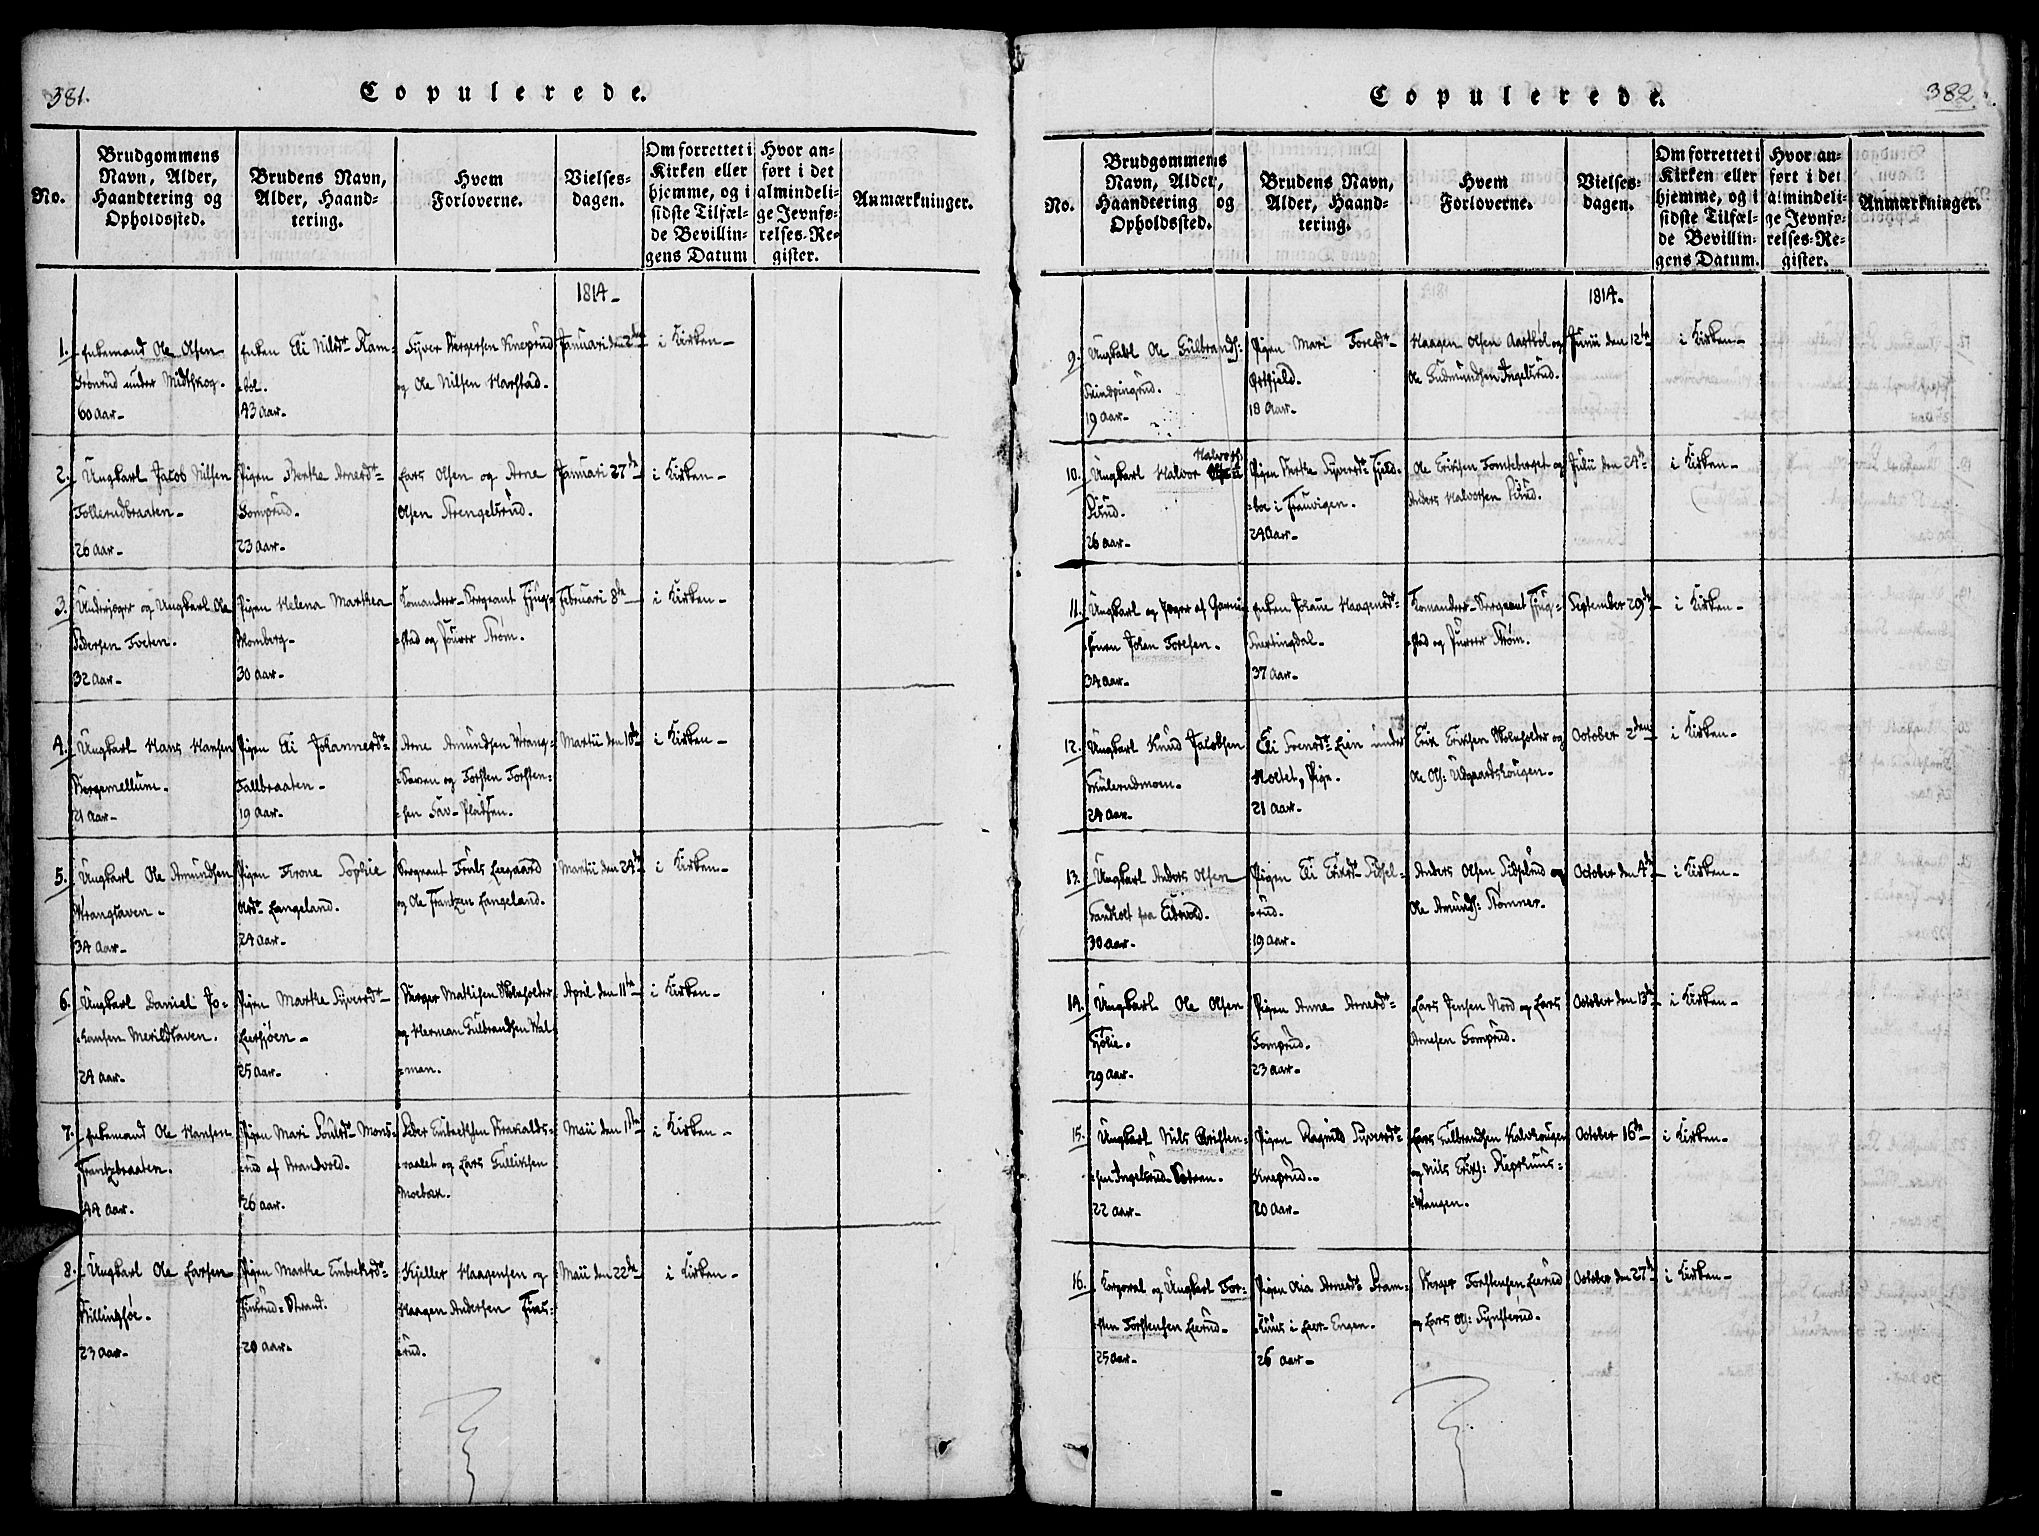 381.
Copulerede.
No.
Brudgommens
Navn, Alder,
Haandtering og
Opholdssted.
Brudens Navn,
Alder, Haand-
tering.
Hvem
Forloverne.
Vielses-
dagen.
Om forrettet i
Kirken eller
hjemme, og i
sidste Tilfæl-
de Bevillin-
gens Datum
Hvor an-
ført i det
almindeli-
ge Jevnfø-
relses-Re-
gister.
Anmærkninger.
1814-
1. Enkemand Ole Olsen
Grönrud under Midtskog.
60 aar-
Enken Eli Nilsdr Ram-
=böl.
43 aar-
Syver Bergersen Kneprud
og Ole Nilsen Harstad.
Januari den 2den
i Kirken-
2. Ungkarl Jacob Nilsen
Föllerudbraaten-
26 aar-
Pigen Berthe Arnesdr
Gomprud.
23 aar-
Lars Olsen og Arne
Olsen Strengelsrud.
Januari 27de
i Kirken-
3. Underjeger og Ungkarl Ole
Pedersen Tveten.
32 aar-
Pigen Helena Marthea
Blomberg-
30 aar-
Komandeer-Sergeant Fjug-
=stad og Fourer Ström.
Februari 8de
i Kirken-
4. Ungkarl Hans Hansen
Børgemellum.
21 aar-
Pigen Eli Johannesdr
Fallbraaten-
19 aar-
Arne Amundsen Wrang-
=haven og Torsten Torsten-
=sen Sav-Pladsen.
Martii den 10de
i Kirken-
5. Ungkarl Ole Amundsen
Wranghaven-
34 aar-
Pigen Trone Sophie
Olsdr Langeland.
24 aar-
Sergeant Truls Liegaard
og Ole Frantzen Langeland.
Martii den 24de
i Kirken-
6. Ungkarl Daniel Jo-
=hansen Merildhaven.
24 aar-
Pigen Marthe Syversdr
Leersjöen-
25 aar-
Berger Mathisen Skoleholder
og Herman Gulbrandsen Wal-
=man.
April den 11te
i Kirken-
7. Enkemand Ole Hansen
Frantzbraaten.
44 aar.
Pigen Mari Poulsdr Mons-
=rud af Brandvold.
26 aar.
Peder Embretsen
og Lars Gulliksen
Moebæk.
Maii den 11te
i Kirken-
8. Ungkarl Ole Larsen
Killingsöe.
23 aar-
Pigen Marthe Embretsdr
Strand.
20 aar-
Kjeller Haagensen og
Haagen Andersen Furu-
=rud.
Maii den 22de
i Kirken-
382.
Copulerede.
No.
Brudgommens
Navn, Alder,
Haandtering og
Opholdssted.
Brudens Navn,
Alder, Haand-
tering.
Hvem
Forloverne.
Vielses-
dagen.
Om forrettet i
Kirken eller
hjemme, og i
sidste Tilfæl-
de Bevillin-
gens Datum.
Hvor an-
ført i det
almindeli-
ge Jevnfø-
relses-Re-
gister.
Anmærkninger.
1814-
9. Ungkarl Ole Gulbrands:
19 aar-
Pigen Mari Toresdr
Östfjeld.
18 aar-
Haagen Olsen Aastböl og
Ole Gudmundsen Ingelsrud.
Junii den 12te
i Kirken-
10. Ungkarl Halvor Halvors:
Riiud.
26 aar-
Pigen Berthe Syversdr Fjeld-
=boe i Trauvigen.
24 aar-
Ole Eriksen Tomteberget og
Anders Halvorsen Riiud.
Julii den 24de
i Kirken-
11. Ungkarl og Jeger af Garni-
=sonen Johan Toresen.
34 aar-
Enken Johane Haagensdr
Snertingdal-
37 aar-
Komandeer-Sergeant Fjug-
=stad og Fourer Ström.
September 29de
i Kirken-
12. Ungkarl Knud Jacobsen
Kulerudmoen-
24 aar.
Eli Svensdr Lien under
Holtet, Pige.
21 aar-
Erik Eriksen Skoleholder og
Ole Ols: Udgaardshougen-
October 2den
i Kirken-
13. Ungkarl Anders Olsen
Sandholt fra Eidsvold.
30 aar-
Pigen Eli Eriksdr Sidsel-
=rud.
19 aar-
Anders Olsen Sidselrud og
Ole Amunds: Stömner.
October den 4de
i Kirken-
14. Ungkarl Ole Olsen
Kölie.
29 aar-
Pigen Anne Arnesdr
Gomprud.
23 aar-
Lars Jensen Nord og Lars
Arnesen Gomprud.
October den 13de
i Kirken-
15. Ungkarl Nils Christen-
=sen Ingelsrud-Sætren.
22 aar-
Pigen Ragnild Syversdr
Kneprud.-
20 aar-
Lars Gulbrandsen Kalvhougen
og Nils Eriks: Repshuus-
=hougen.
October 16te
i Kirken-
16. Korporal og Ungkarl Tor-
=sten Torstensen Lierud-
25 aar-
Pigen Olia Arnesdr Bram-
=huus i Leer-Engen.
26 aar-
Berger Torstensen Lierud
og Lars Ols: Synsterud.
October den 27de
i Kirken-